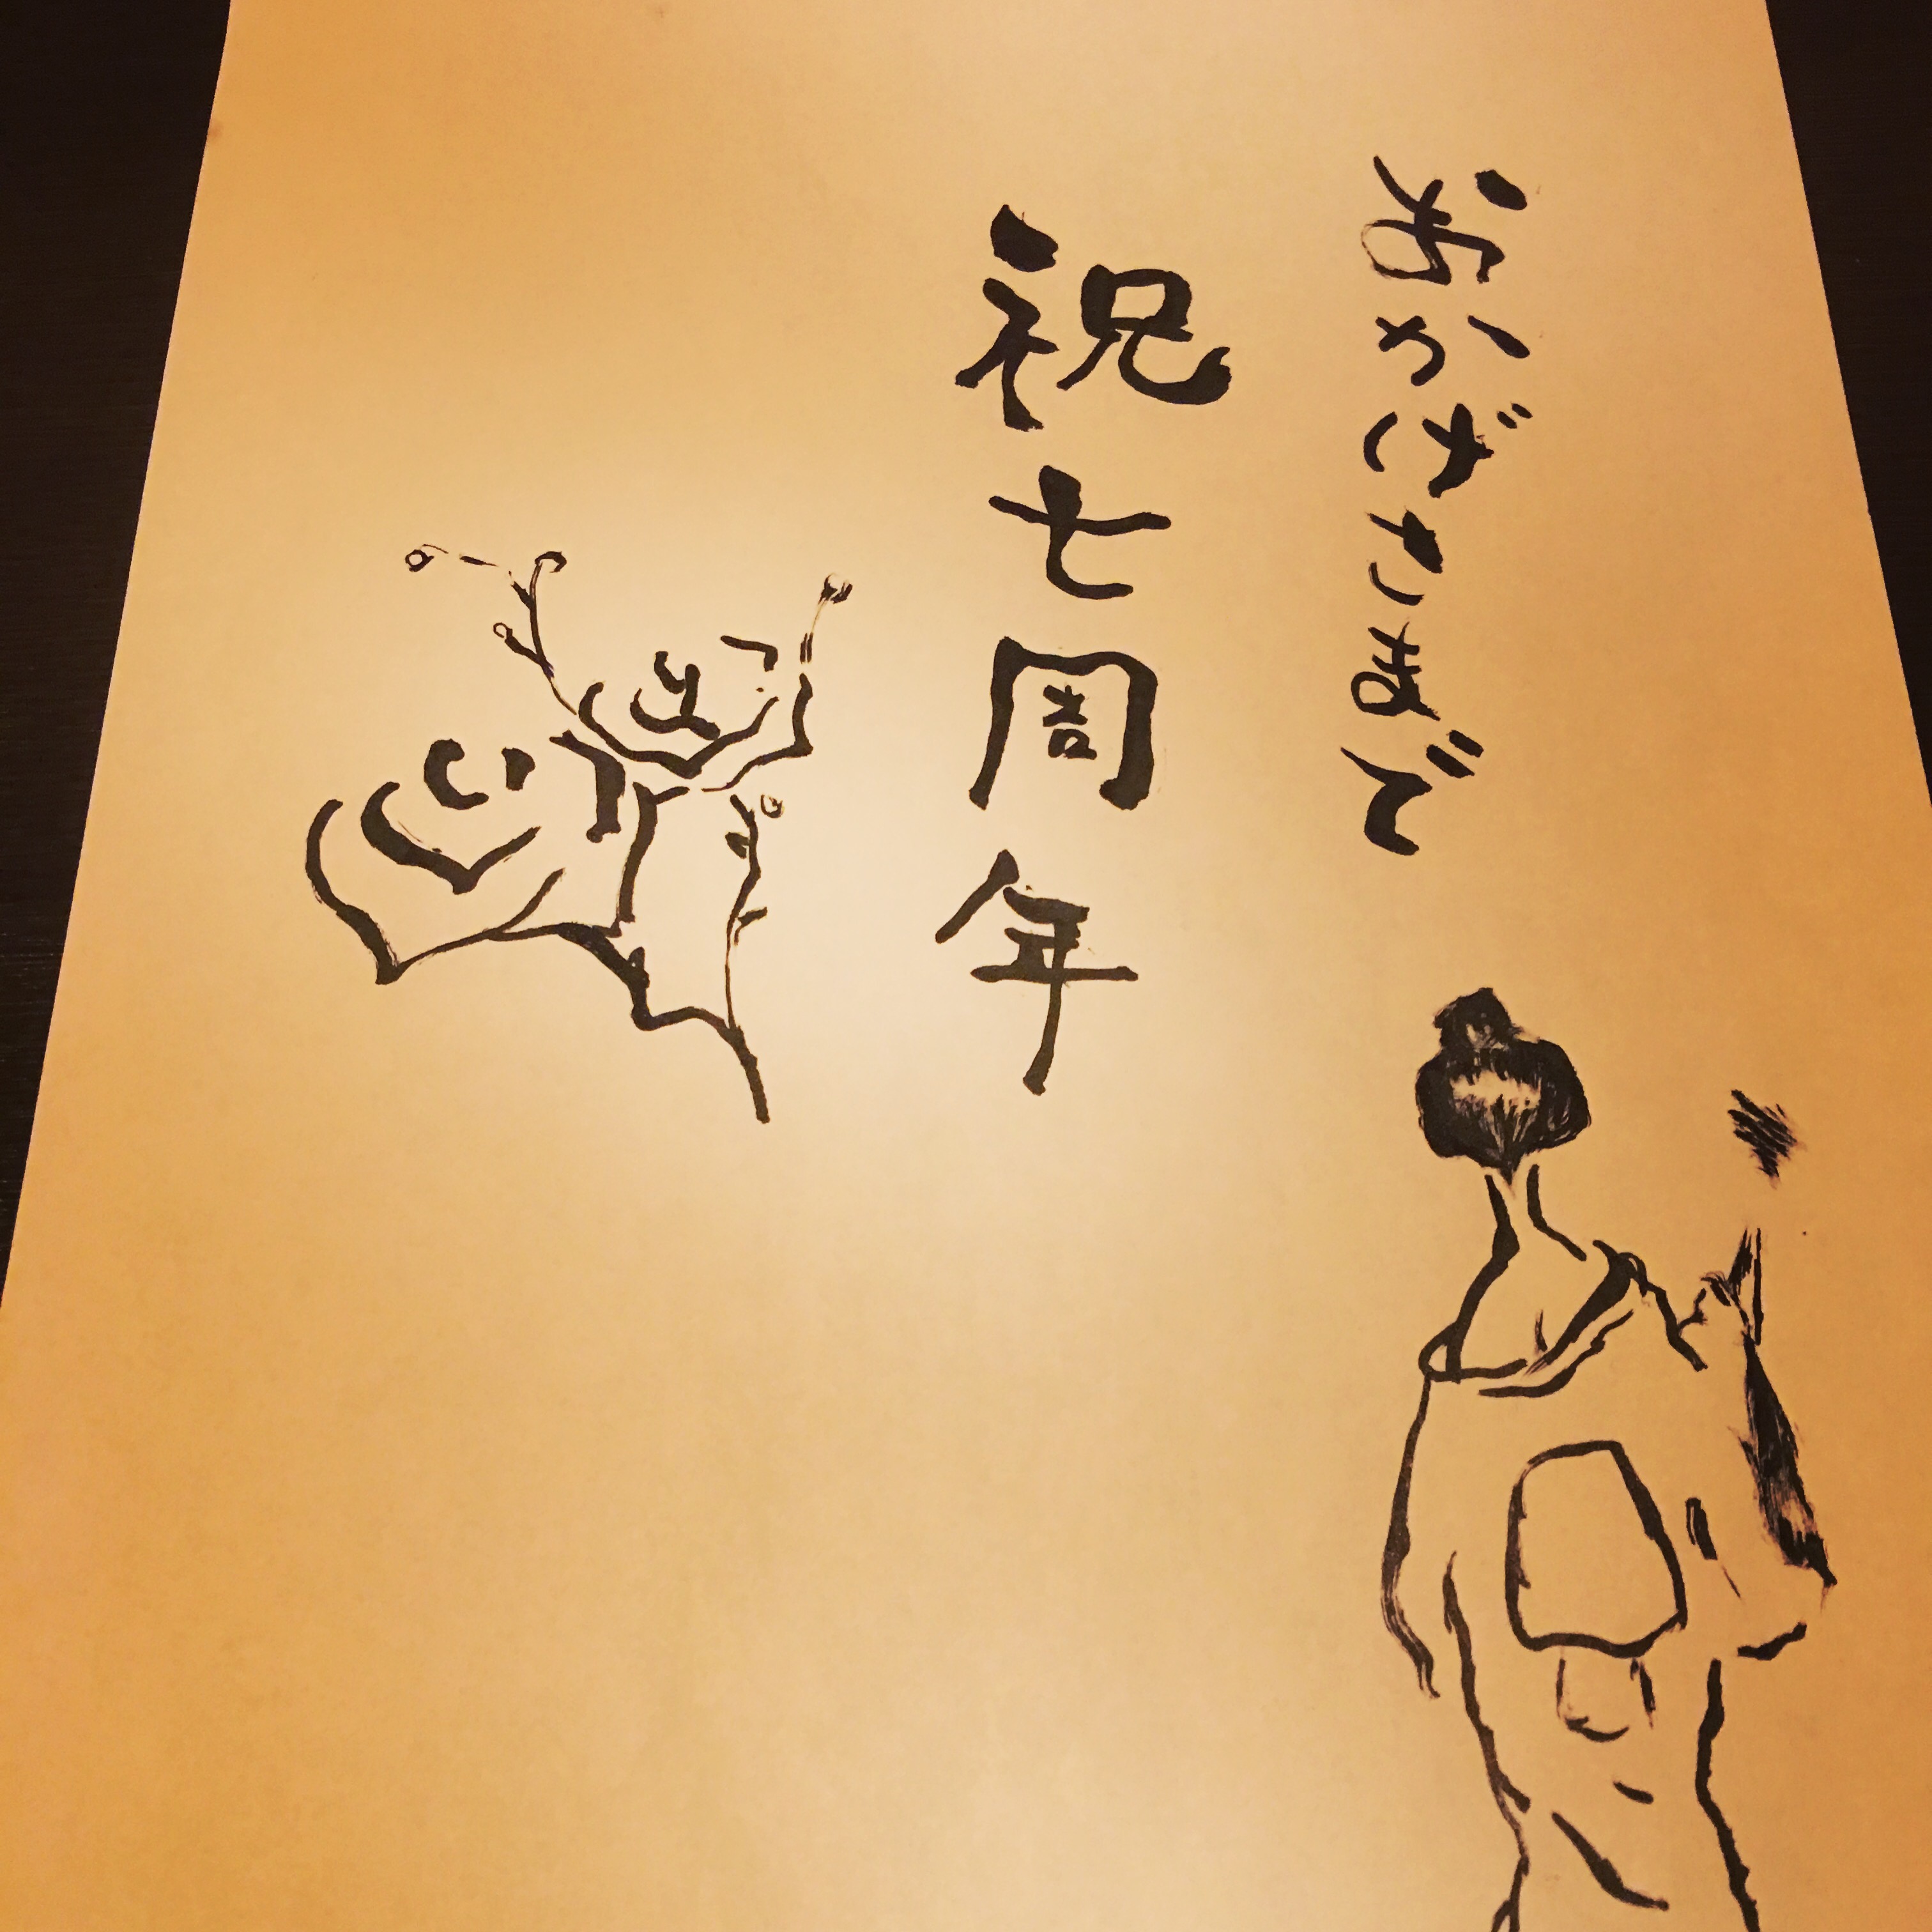 おかげさまで
祝七周年